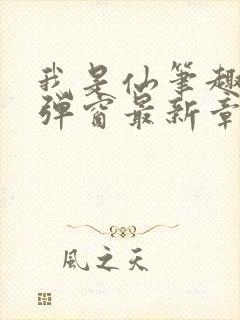 我是仙笔趣
弹窗最新章
風之天